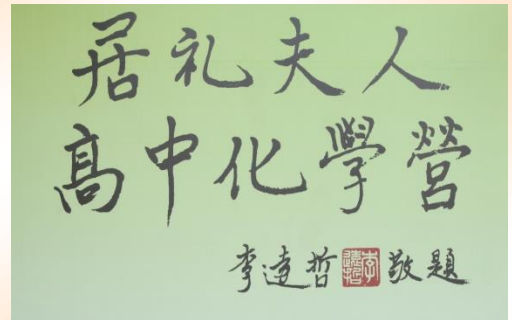 居礼夫人
高中化學營
李遠哲 李遠哲 敬題